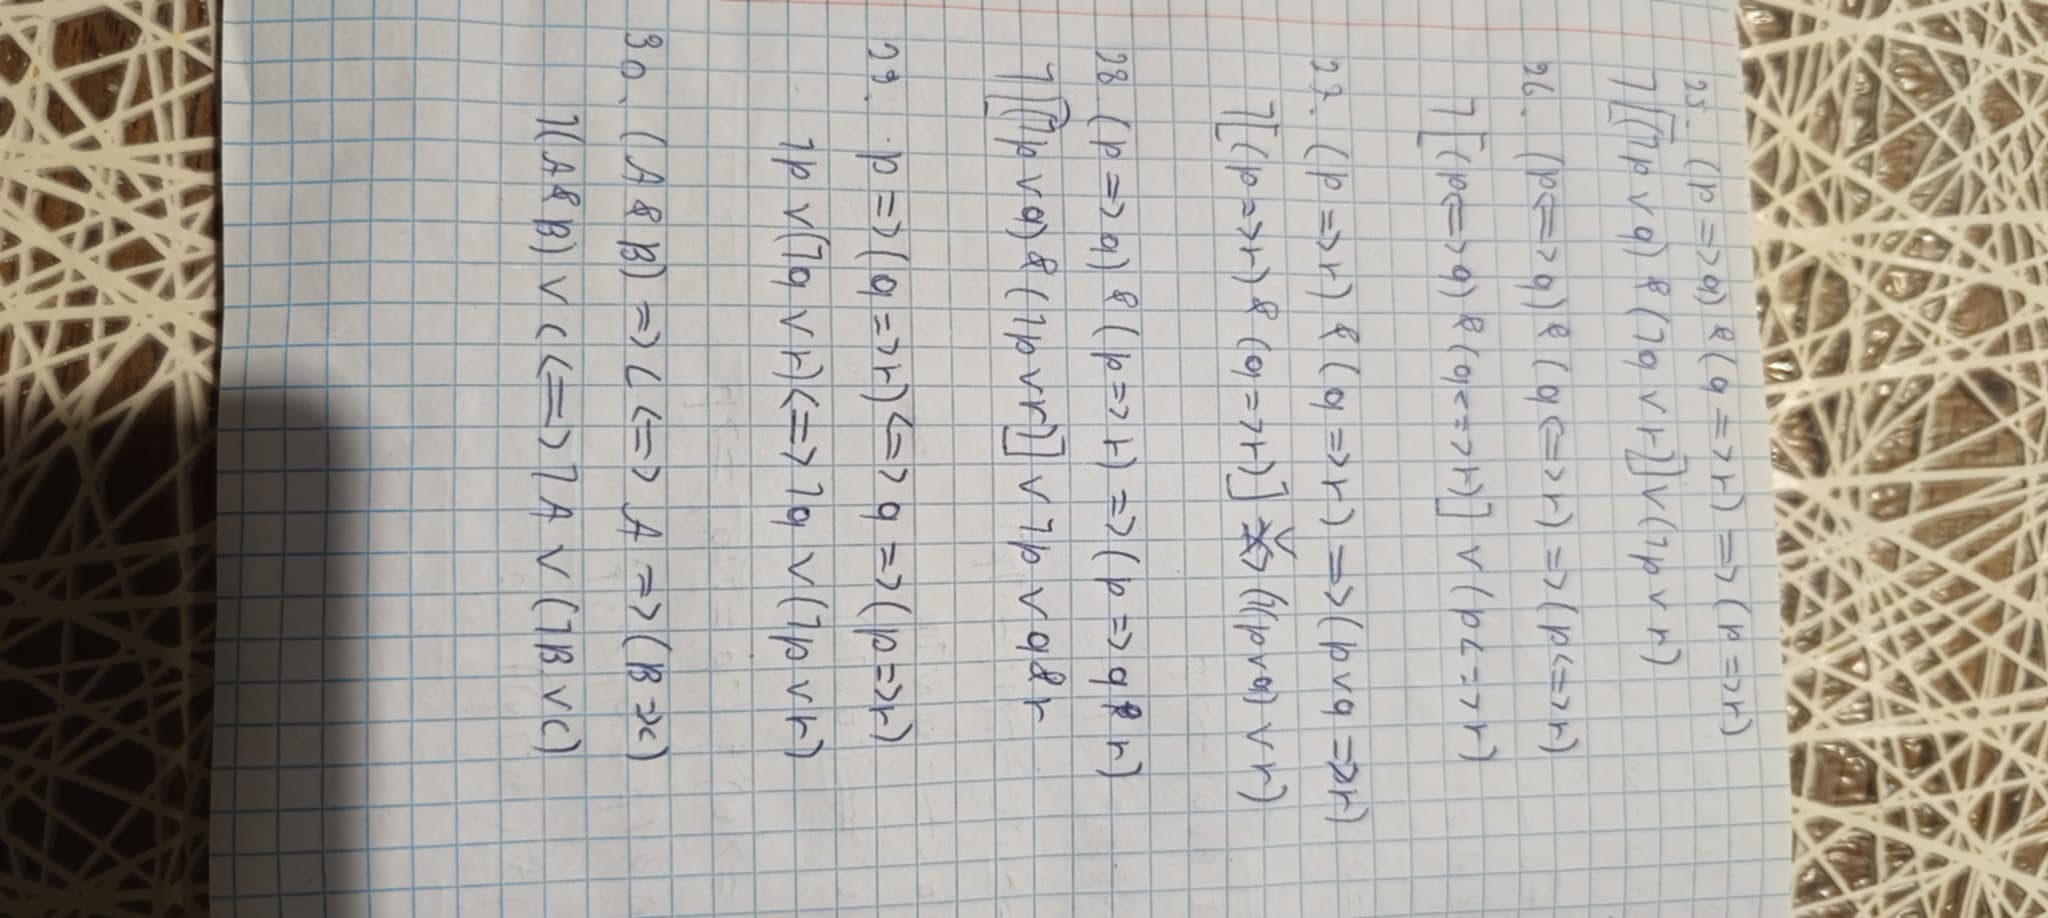 25. (p => q) & (q => r) => (p => r)
⅂[(⅂p v q) & (⅂q v r)] v (⅂p v r)
26. (p <=> q) & (q <=> r) => (p <=> r)
⅂[(p <=> q) & (q <=> r)] v (p <=> r)
27. (p => r) & (q => r) => (p v q => r)
⅂[(p => r) & (q => r)] v (⅂(p v q) v r)
28. (p => q) & (p => r) => (p => q & r)
⅂[(⅂p v q) & (⅂p v r)] v ⅂p v q & r
29. p => (q => r) <=> q => (p => r)
⅂p v (⅂q v r) <=> ⅂q v (⅂p v r)
30. (A & B) => C <=> A => (B => C)
⅂(A & B) v C <=> ⅂A v (⅂B v C)